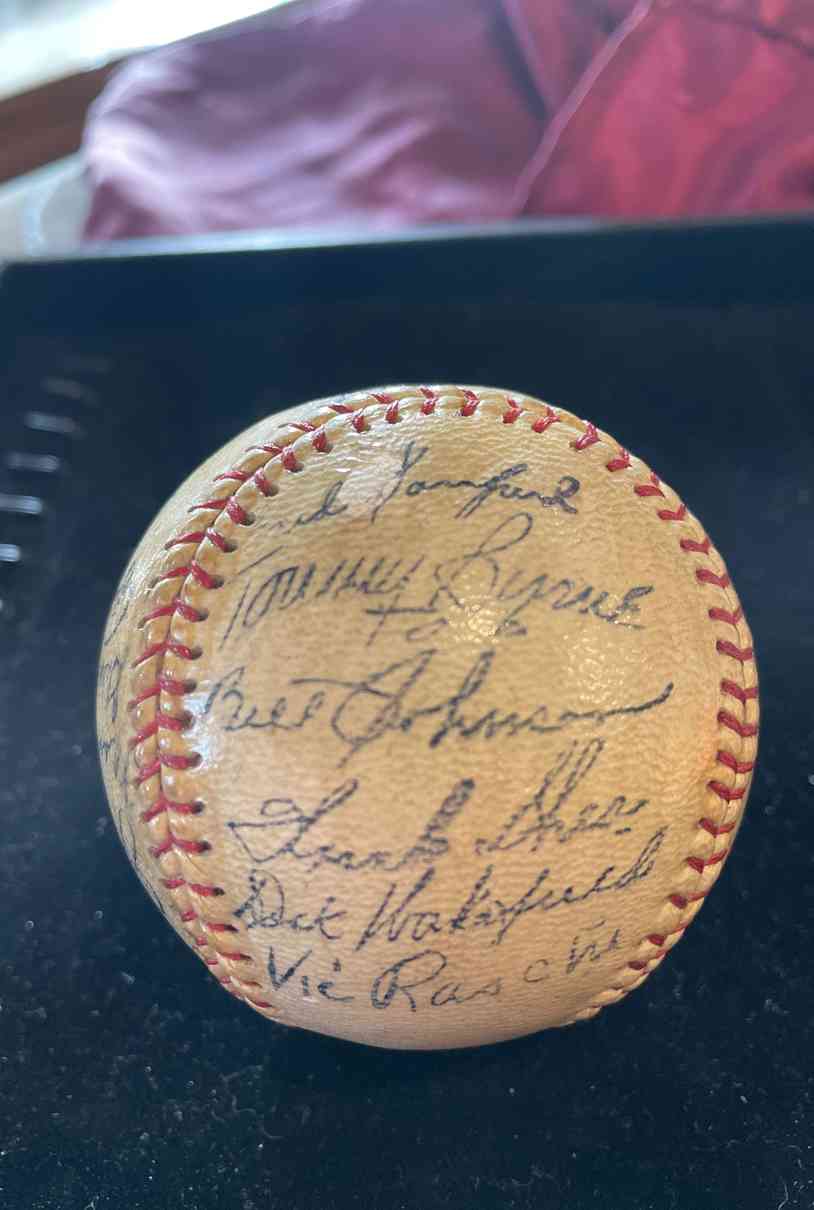 Fred Sanford
Tommy Byrne
Bill Johnson
Frank Shea
Dick Wakefield
Vic Raschi